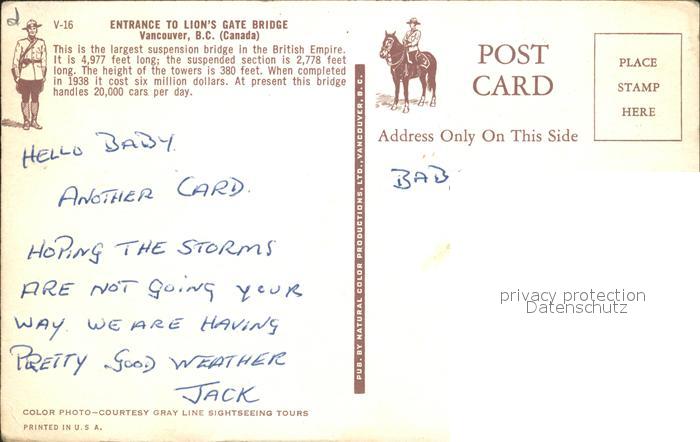 V-16 ENTRANCE TO LION'S GATE BRIDGE
Vancouver, B.C. (Canada)
This is the largest suspension bridge in the British Empire.
It is 4,977 feet long; the suspended section is 2,778 feet
long. The height of the towers is 380 feet. When completed
in 1938 it cost six million dollars. At present this bridge
handles 20,000 cars per day.
HELLO BABY.
ANOTHER CARD.
HOPING THE STORMS
ARE NOT GOING YOUR
WAY. WE ARE HAVING
PRETTY GOOD WEATHER
JACK
COLOR PHOTO—COURTESY GRAY LINE SIGHTSEEING TOURS
PRINTED IN U. S. A.
PUB. BY NATURAL COLOR PRODUCTIONS, LTD., VANCOUVER, B. C.
POST
CARD
PLACE
STAMP
HERE
Address Only On This Side
BAB
privacy protection
Datenschutz